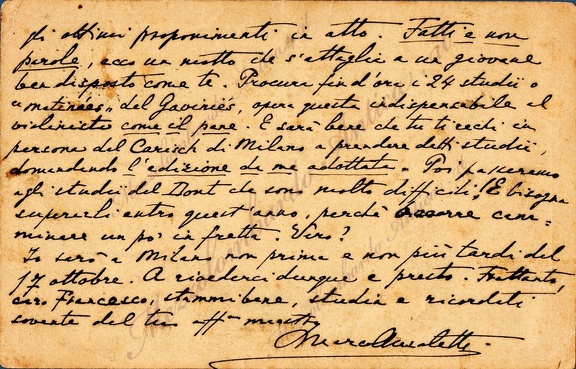 gli ottimi proponimenti in atto. Fatti e non
parole, ecco un motto che s'attaglia a un giovane
ben disposto come te. Procura fin d'ora i 24 studii o
"matinées" del Gaviniés, opera questa indispensabile al
violinista come il pane. E sarà bene che tu ti rechi in
persona del Carisch di Milano a prendere detti studii,
domandando l'edizione da me adottata. Poi passeremo
agli studii del Dont che son molto difficili! E bisogna
superarli entro quest'anno, perchè occorre cam-
minare un po' in fretta. Vero?
Io sarò a Milano non prima e non più tardi del
17 ottobre. A rivederci dunque e presto. Frattanto,
caro Francesco, stammi bene, studia e ricordati
sovente del tuo aff.mo maestro
Marco